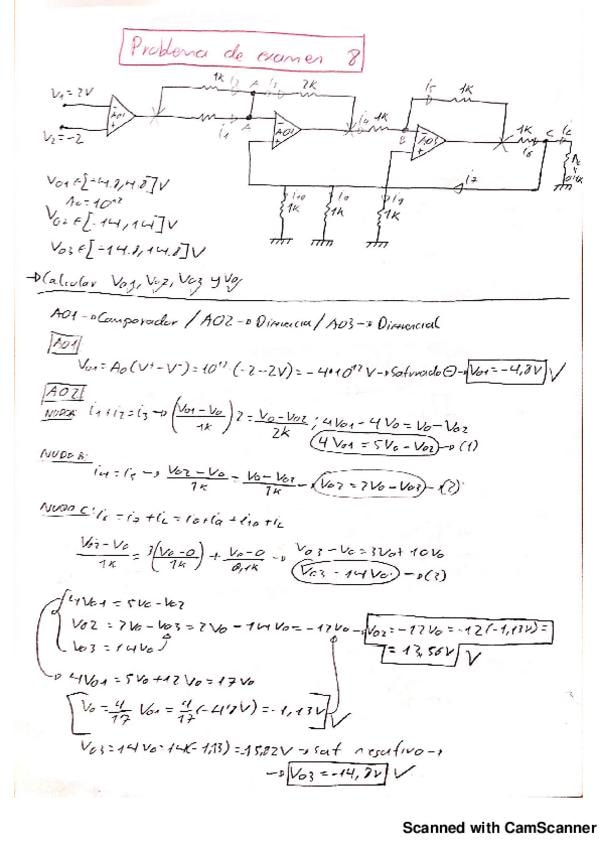 Problema de examen 8
V1=2V
V2=-2
AO1
1K
i2
A
i3
2K
i1
A
AO1
i4
1K
B
i5
1K
AO3
1K
i6
C
iL
i7
i10
1K
i9
1K
1K
V01 ∈ [-4.8,4.8]V
A0=10^12
V02 ∈ [-14,14]V
V03 ∈ [-14.8,14.8]V
→ Calcular V01, V02, V03 y V0
AO1→Comparador / AO2→Diferencial / AO3→Diferencial
AO1
V01 = A0(V+-V-) = 10^12(-2-2V) = -4·10^12 V → saturado ⊖ → V01 = -4,8V √
AO2
NUDO A: i1+i2=i3 → (V01-V0/1K)2 = V0-V02/2K ; 4V01-4V0=V0-V02
4V01=5V0-V02 → (1)
NUDO B:
i4=i5 → V02-V0/1K = V0-V03/1K → V02=2V0-V03 → (2)
NUDO C: i6=i7+iL=i8+i9+i10+iL
V03-V0/1K = 3(V0-0/1K) + V0-0/0,1K → V03-V0=3V0+10V0
V03=14V0 → (3)
4V01=5V0-V02
V02=2V0-V03=2V0-14V0=-12V0 → V02=-12V0=-12(-1,13V)=
V03=14V0
=13,56V √
→ 4V01=5V0+12V0=17V0
V0=4/17 V01=4/17(-4,8V)=-1,13V √
V03=14V0=14(-1,13)=-15,82V → sat negativo →
→ V03=-14,8V √
Scanned with CamScanner